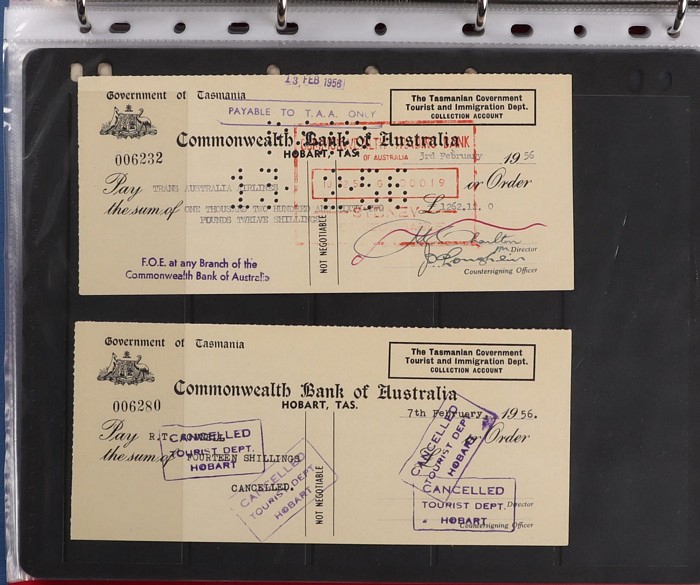 13 FEB 1956
Government of Tasmania
PAYABLE TO T.A.A. ONLY
The Tasmanian Government
Tourist and Immigration Dept.
COLLECTION ACCOUNT
Commonwealth Bank of Australia
HOBART, TAS.
OF AUSTRALIA
006232
3rd February 1956
Pay TRANS AUSTRALIA AIRLINES or Order
the sum of ONE THOUSAND TWO HUNDRED AND SIXTY TWO £1262.12. 0
POUNDS TWELVE SHILLINGS
SYDNEY
NOT NEGOTIABLE
Director
Countersigning Officer
F.O.E. at any Branch of the
Commonwealth Bank of Australia
Government of Tasmania
The Tasmanian Government
Tourist and Immigration Dept.
COLLECTION ACCOUNT
Commonwealth Bank of Australia
HOBART, TAS.
006280
7th February, 1956.
Pay R.T. or Order
the sum of FOURTEEN SHILLINGS
CANCELLED.
NOT NEGOTIABLE
CANCELLED
TOURIST DEPT.
HOBART
CANCELLED
TOURIST DEPT.
HOBART
CANCELLED
TOURIST DEPT.
HOBART
CANCELLED
TOURIST DEPT.
HOBART
Director
Countersigning Officer